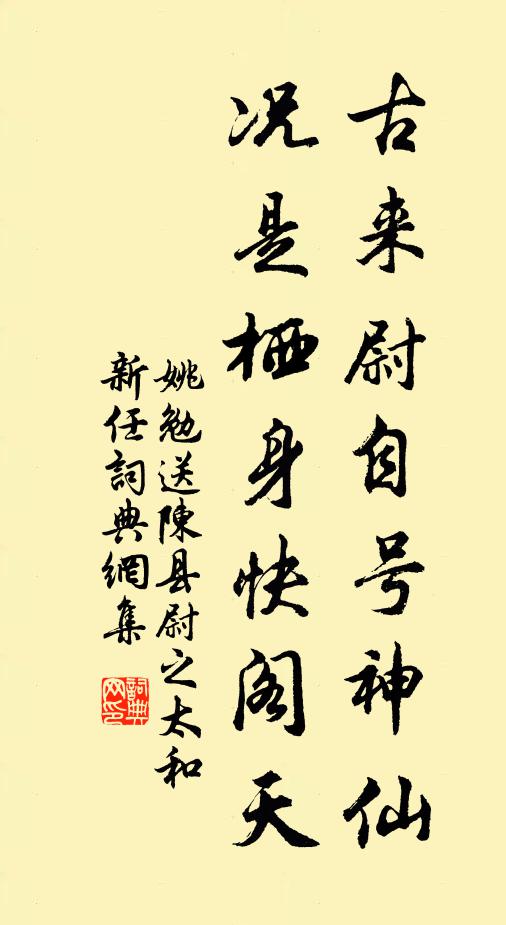 古来尉自号神仙
况是栖身快阁天
姚勉送陳县尉之太和
新任詞典網集
詞典
网印